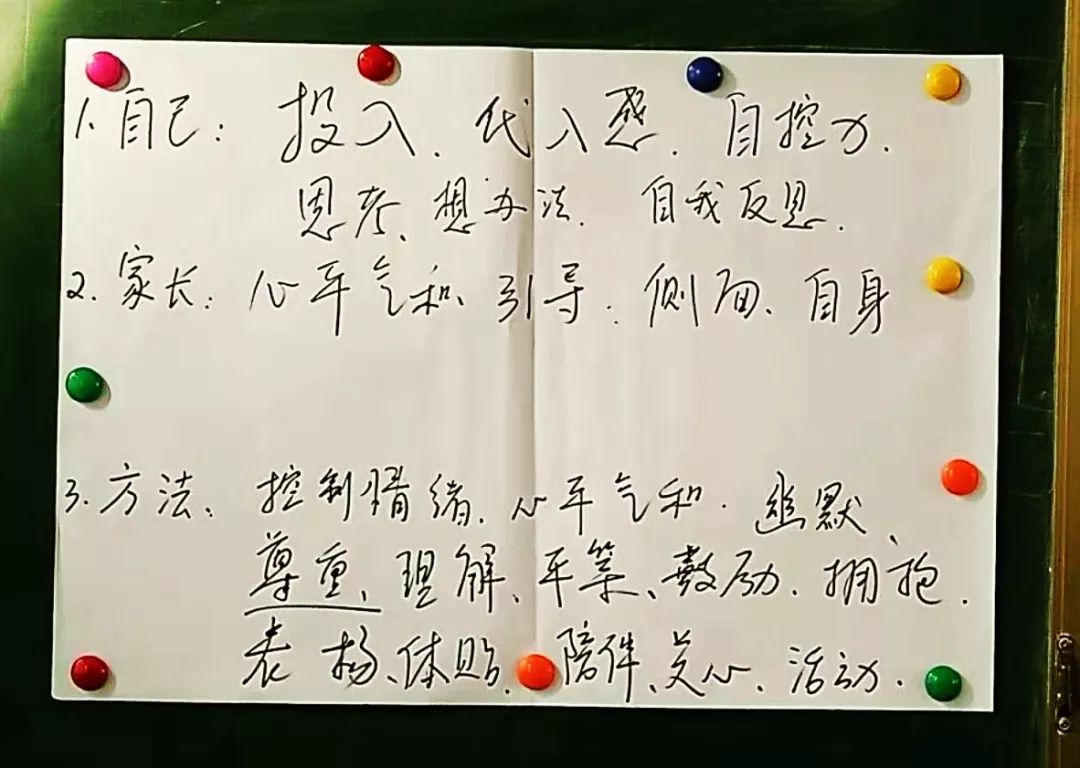 1. 自己：投入、代入感、自控力.
思考、想办法、自我反思.
2. 家长：心平气和、引导：侧面、自身
3. 方法、控制情绪、心平气和. 幽默、
尊重、理解、平等、鼓励、拥抱.
表扬、体贴、陪伴、关心、活动.